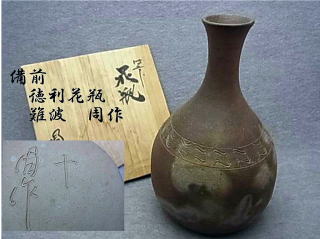 備前
徳利花瓶
難波 周作
花瓶
周作
十